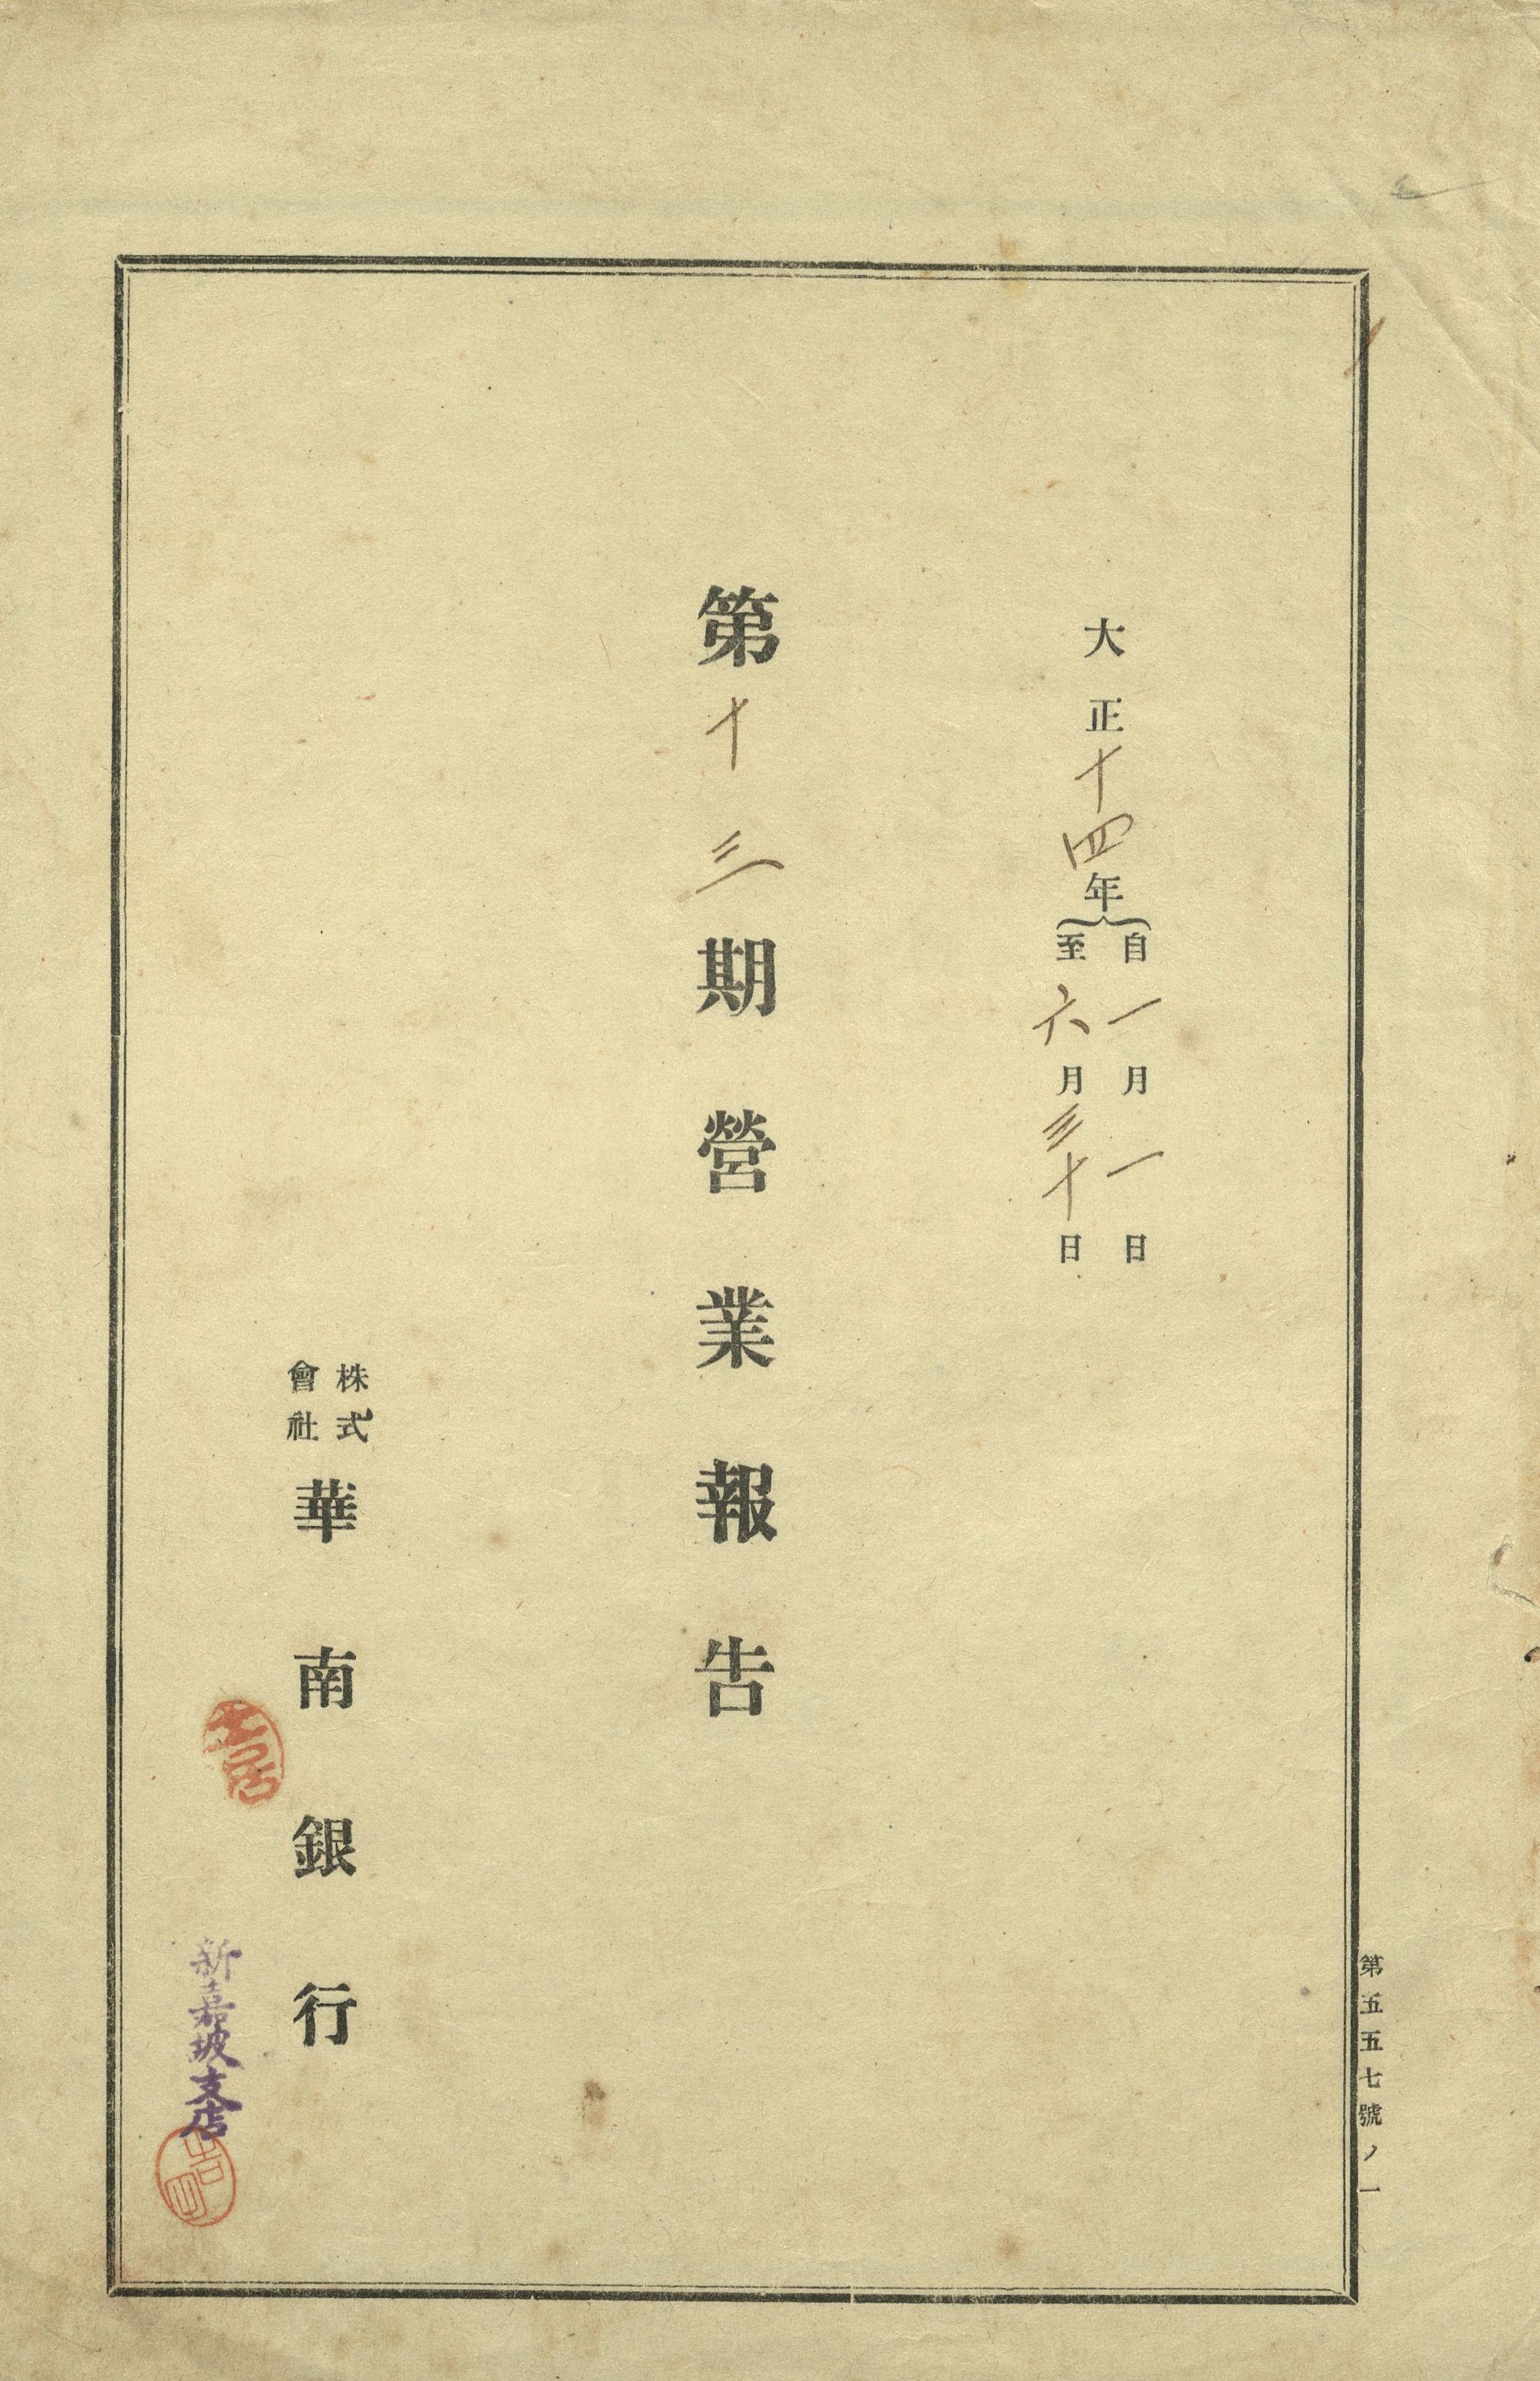 大正十四年
自一月一日
至六月三十日
第十三期營業報告
株式
會社
華南銀行
新嘉坡支店
第五五七號ノ一